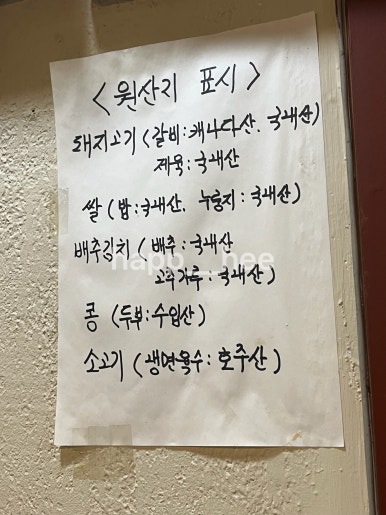 <원산지 표시>
돼지고기 (갈비:캐나다산, 국내산)
제육:국내산
쌀 (밥:국내산, 누룽지:국내산)
배추김치 (배추:국내산
고추가루:국내산)
콩 (두부:수입산)
소고기 (냉면육수:호주산)